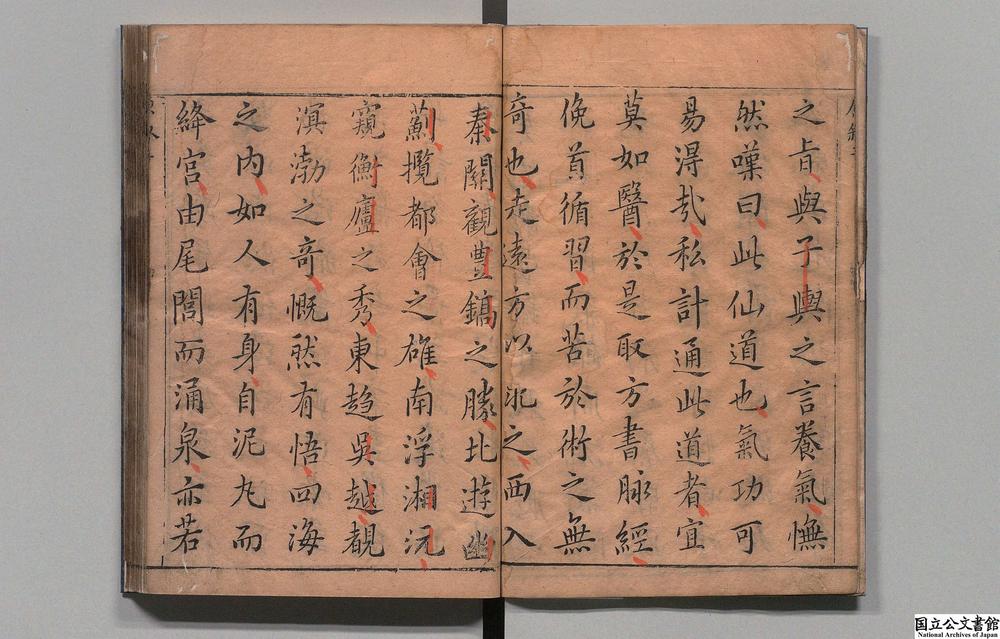 之旨與子輿之言養氣憮
然嘆曰此仙道也氣功可
易得哉私計通此道者宜
莫如醫於是取方書脉經
俛首循習而苦於術之無
奇也走遠方以求之西入
秦關觀豐鎬之勝北遊幽
薊攬都會之雄南浮湘沅
窺衡廬之秀東趋吳越覩
溟渤之奇慨然有悟四海
之内如人有身自泥丸而
絳宮由尾閭而涌泉亦若
国立公文書館
National Archives of Japan